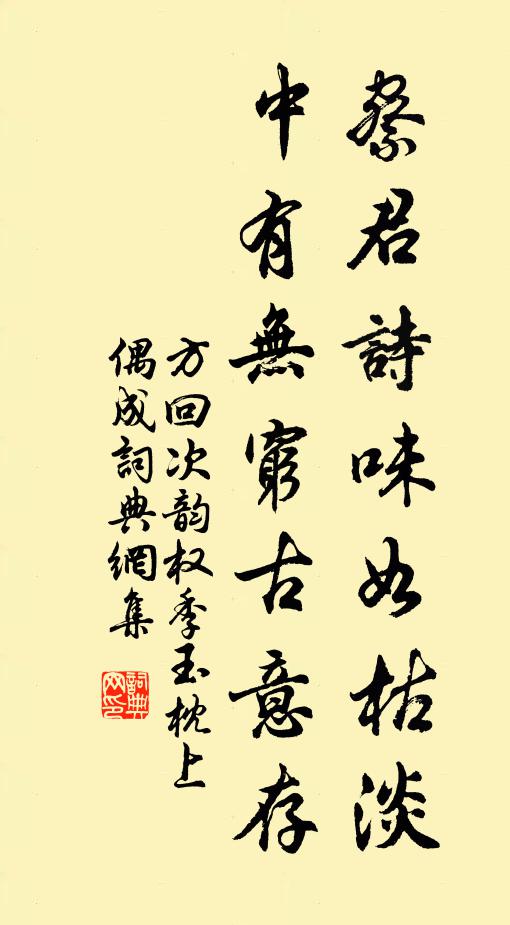 察君詩味如枯淡
中有無窮古意存
方回次韵权季玉枕上
偶成詞典網集
詞典
网印